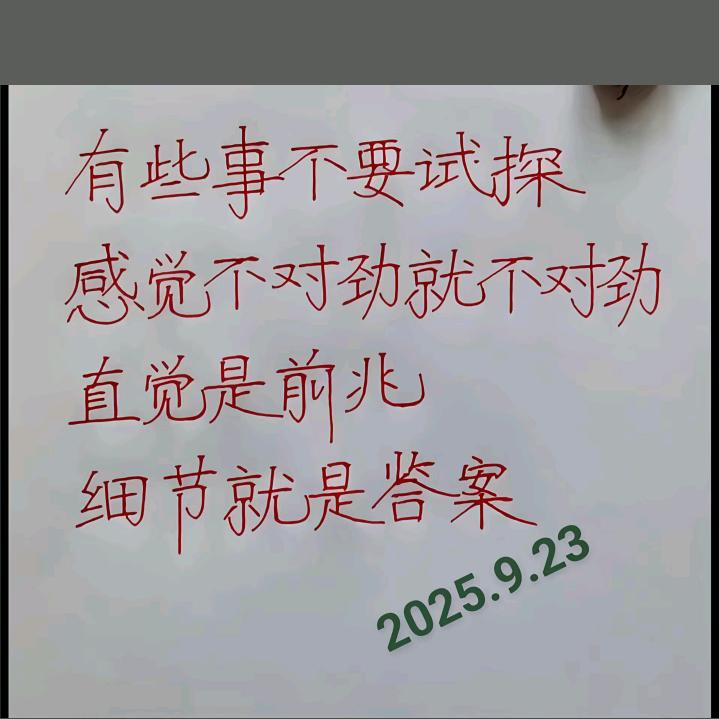 有些事不要试探
感觉不对劲就不对劲
直觉是前兆
细节就是答案
2025.9.23